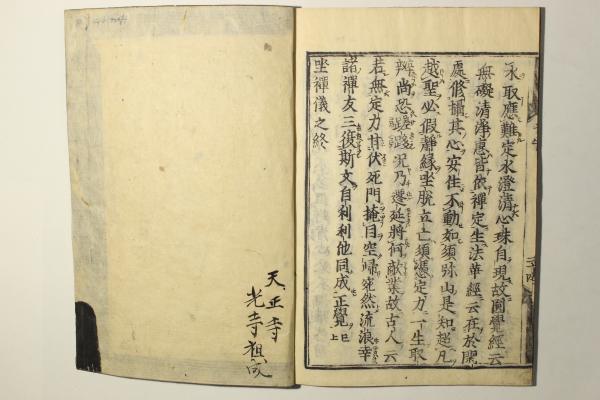 水取應難定水澄清心珠自現故圓覺經云
無礙清淨慧皆依禪定生法華經云在於閑
處修攝其心安住不動如須弥山是知超凡
越聖必假靜縁坐脱立亡須憑定力一生取
辨尚恐蹉跎况乃遷延將何敵業故古人云
若無定力甘伏死門掩目空歸宛然流浪幸
諸禪友三復斯文自利利他同成正覺已上
坐禪儀之終
天正寺
光寺祖